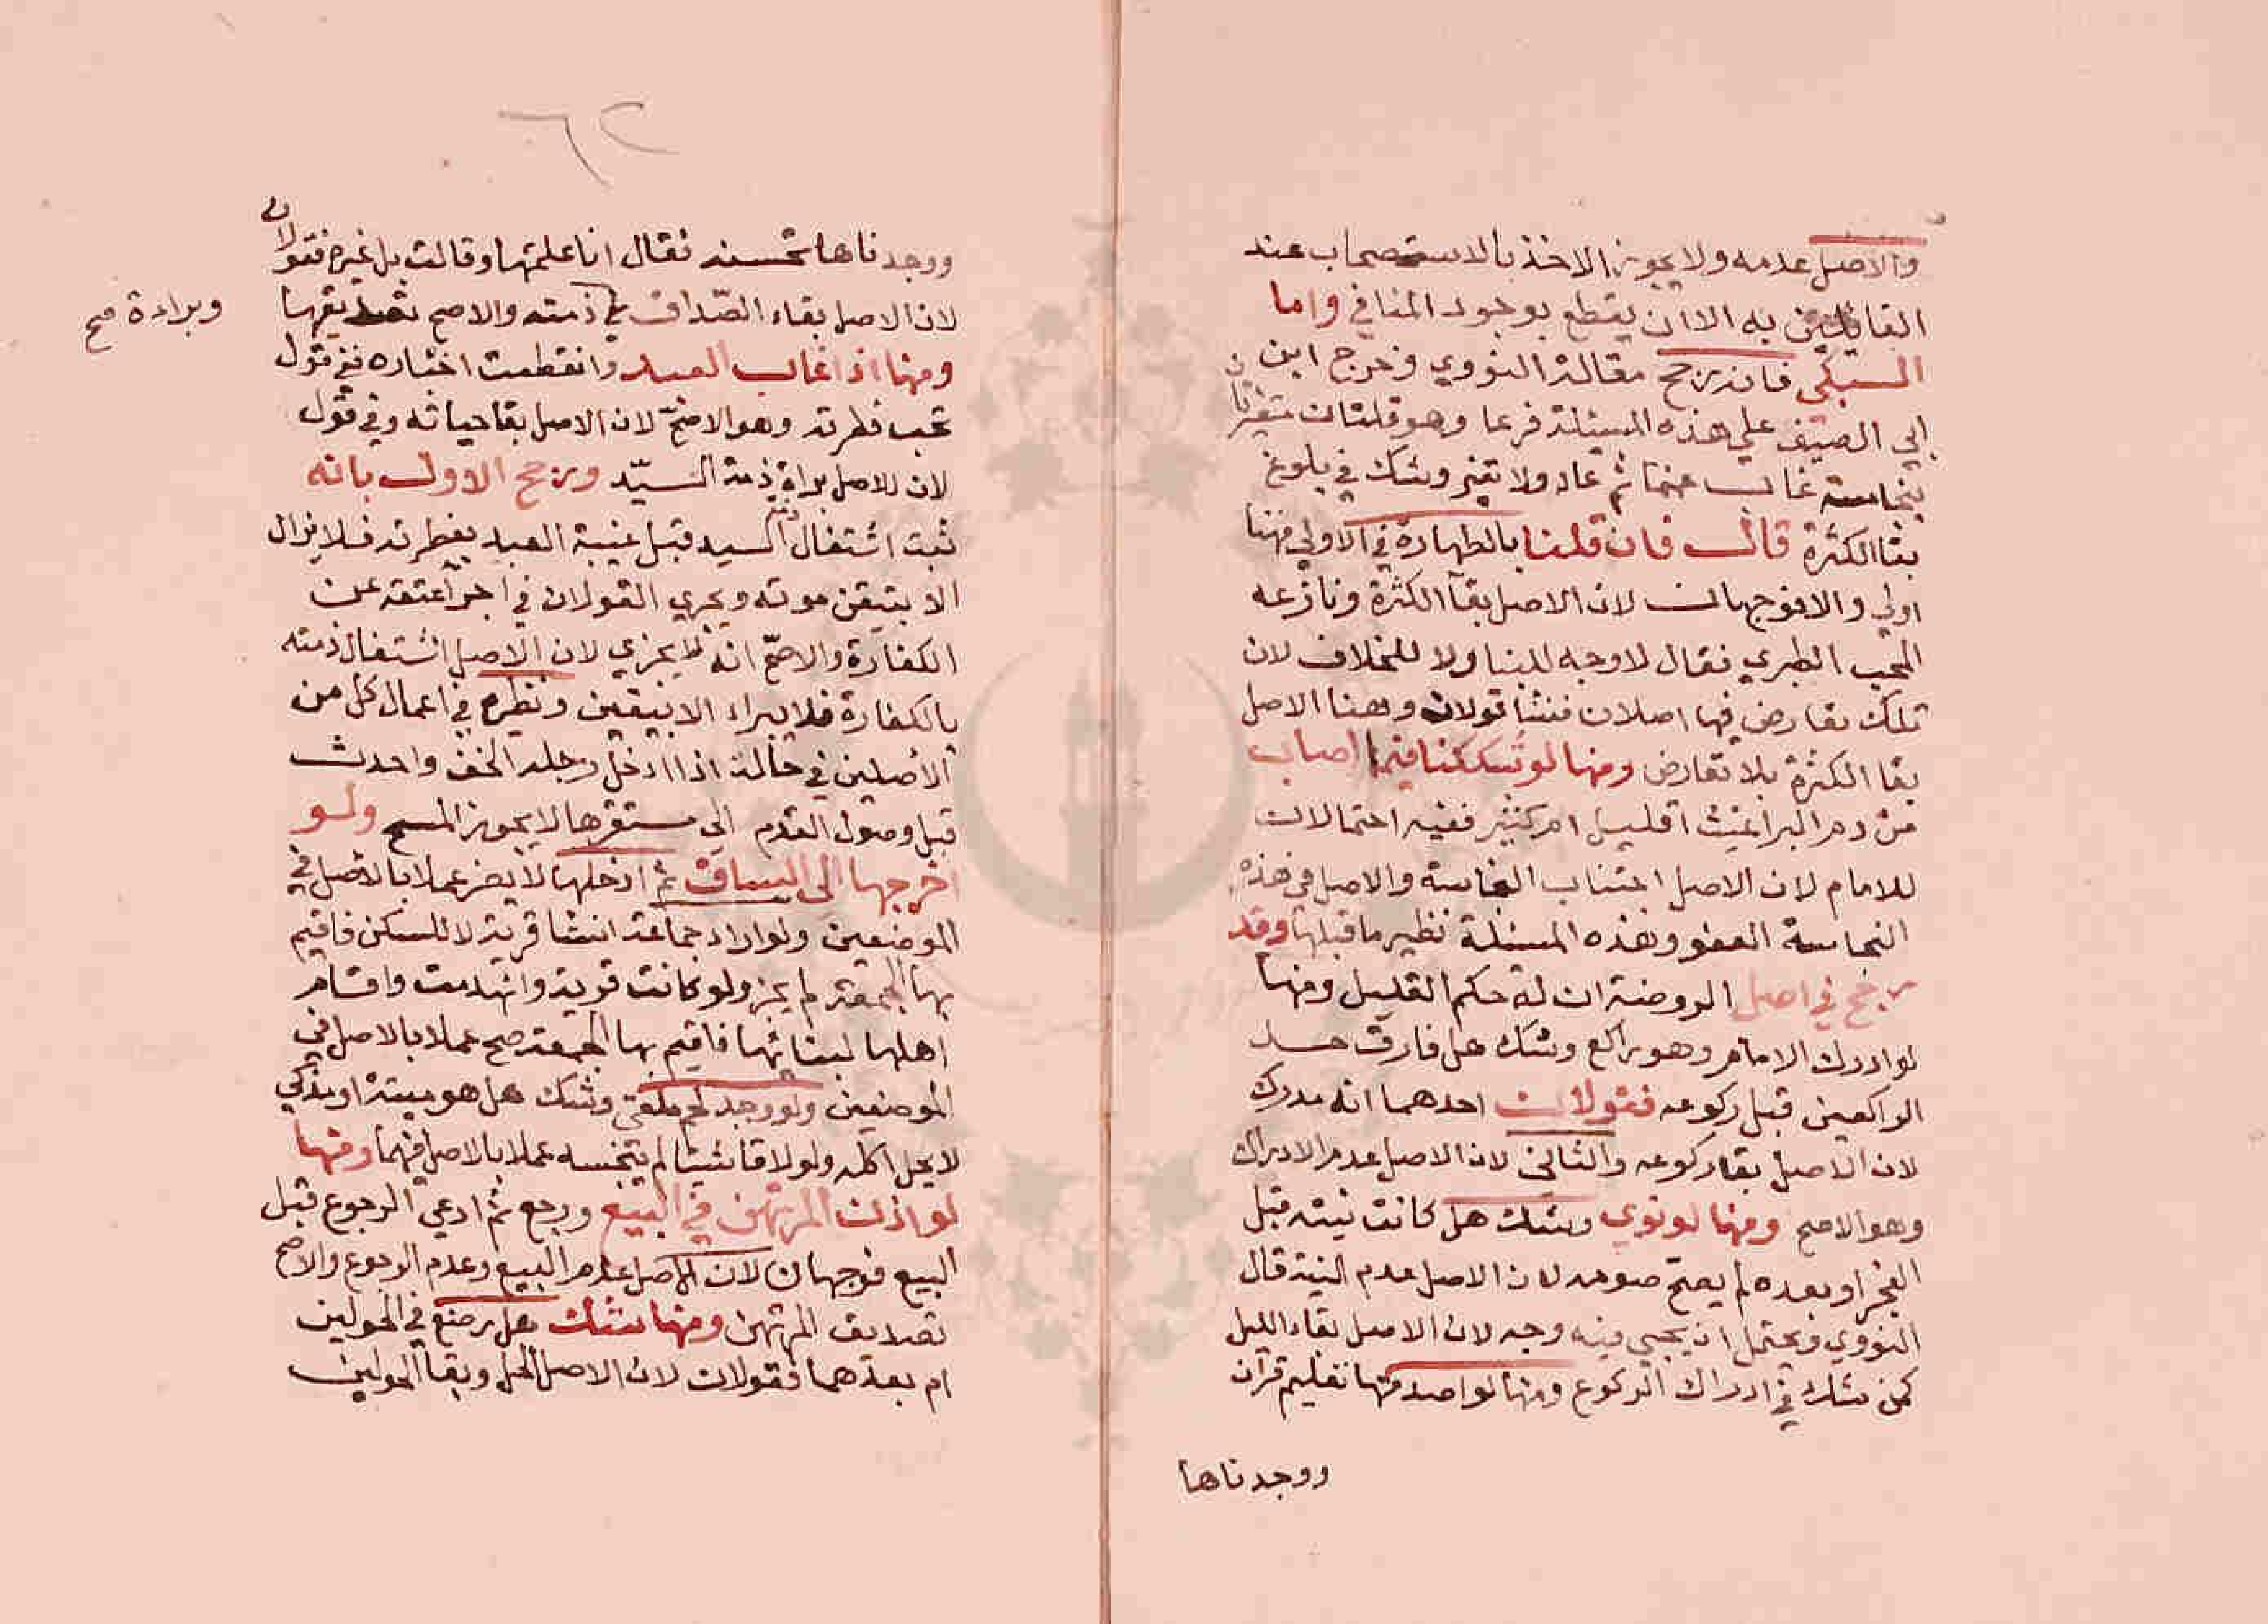 والاصل عدمه ولا يجوز الاخذ بالاستصحاب عند
القائلين به الا ان يقطع بوجود المنافي واما
السبكي فانه رجح مقالة النووي وخرج ابن
ابي الصيف علي هذه المسئلة فرعا وهو قلتان متغيرتان
بنجاسة غاب عنهما ثم عاد ولا تغير وشك في بلوغ
بقا الكثرة قال فان قلنا بالطهارة في الاولي فهنا
اولي والا فوجهان لان الاصل بقآ الكثرة ونازعه
المحب الطبري فقال لا وجه للبنا ولا للخلاف لان
تلك تعارض فيها اصلان فنشا قولان وهنا الاصل
بقا الكثرة بلا تعارض ومنها لو شككنا فيما اصاب
من دم البراغيث اقليل ام كثير ففيه احتمالان
للامام لان الاصل اجتناب النجاسة والاصل في هذه
النجاسة العفو وهذه المسئلة نظير ما قبلها وقد
رجح في اصل الروضة ان له حكم القليل ومنها
لو ادرك الامام وهو راكع وشك هل فارق حد
الراكعين قبل ركوعه فقولان احدهما انه مدرك
لان الاصل بقا ركوعه والثاني لان الاصل عدم الادراك
وهو الاصح ومنها لو نوي وشك هل كانت نيته قبل
الفجر او بعده لم يصح صومه لان الاصل عدم النية قال
النووي ويحتمل ان يجي فيه وجه لان الاصل بقاء الليل
كمن شك في ادراك الركوع ومنها لو اصدقها تعليم قرآن
ووجدناها
٦٢
ووجدناها تحسنه فقال انا علمتها وقالت بل غيره فقولان
لان الاصل بقاء الصداق في ذمته والاصح تصديقها
وبراءة صح
ومنها اذا غاب العبد وانقطعت اخباره ففي قول
تجب فطرته وهو الاصح لان الاصل بقا حياته وفي قول
لان الاصل براة ذمة السيد ورجح الاول بانه
ثبت اشتغال السيد قبل غيبة العبد بفطرته فلا يزال
الا بتيقن موته ويجري القولان في اجزا عتقه عن
الكفارة والاصح انه لا يجزي لان الاصل اشتغال ذمته
بالكفارة فلا يبراء الا بيقين ونظيره في اعمال كل من
الأصلين في حالة اذا ادخل رجله الخف واحدث
قبل وصول القدم الي مستقرها لا يجوز المسح ولو
اخرجها الى الساق ثم ادخلها لا يضر عملا بالاصل في
الموضعين ولو اراد جماعة انشا قرية لا للسكن فاقيم
بها الجمعة لم يجز ولو كانت قرية وانهدمت واقام
اهلها لبنائها فاقيم بها الجمعة صح عملا بالاصل في
الموضعين ولو وجد لحم ملقي وشك هل هو ميتة او مذكي
لا يحل اكله ولو لاقا شيئا لم يتنجسه عملا بالاصل فيهما ومنها
لو اذن المرتهن في البيع ورجع ثم ادعي الرجوع قبل
البيع فوجهان لان الاصل عدم البيع وعدم الرجوع والاصح
تصديق المرتهن ومنها شك هل رضع في الحولين
ام بعدهما فقولان لان الاصل الحل وبقآ الحولين